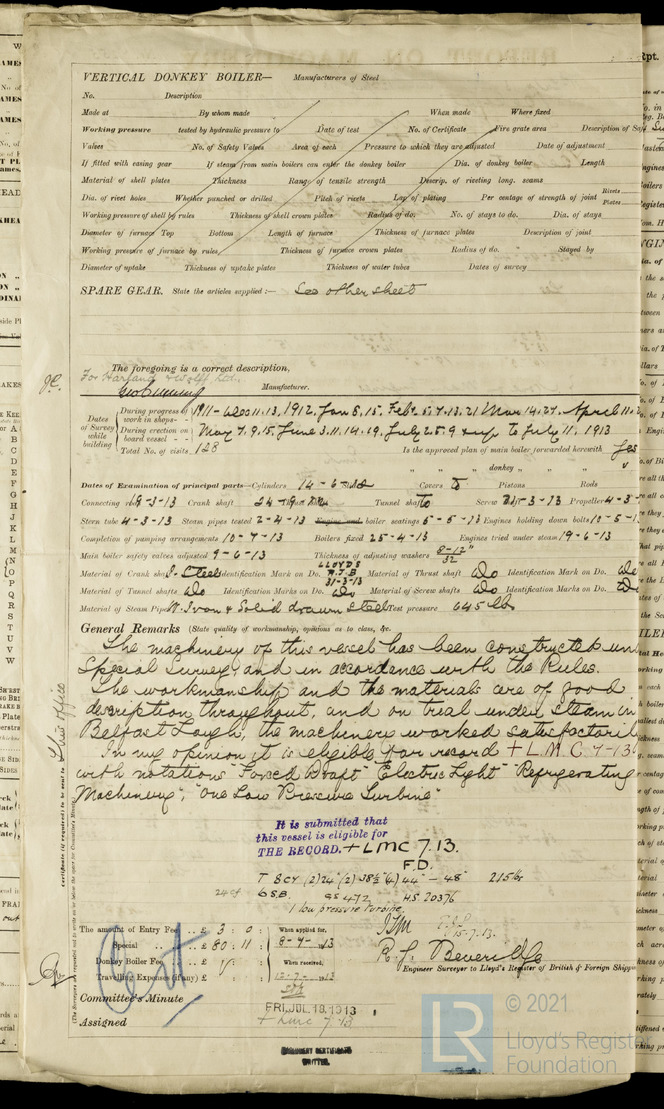 VERTICAL DONKEY BOILER— Manufacturers of Steel
No. Description
Made at By whom made When made Where fixed
Working pressure tested by hydraulic pressure to Date of test No. of Certificate Fire grate area Description of Safe
Valves No. of Safety Valves Area of each Pressure to which they are adjusted Date of adjustment
If fitted with easing gear If steam from main boilers can enter the donkey boiler Dia. of donkey boiler Length
Material of shell plates Thickness Range of tensile strength Descrip. of riveting long. seams
Dia. of rivet holes Whether punched or drilled Pitch of rivets Lap of plating Per centage of strength of joint Rivets Plates
Working pressure of shell by rules Thickness of shell crown plates Radius of do. No. of stays to do. Dia. of stays
Diameter of furnace Top Bottom Length of furnace Thickness of furnace plates Description of joint
Working pressure of furnace by rules Thickness of furnace crown plates Radius of do. Stayed by
Diameter of uptake Thickness of uptake plates Thickness of water tubes Dates of survey
SPARE GEAR. State the articles supplied:— See other sheet
The foregoing is a correct description,
For Harland & Wolff Ltd.
Manufacturer.
Dates of Survey while building
During progress of work in shops - - 1911- Dec 11.13. 1912. Jan 8.15. Feb. 5.7.13.21 Mar 14.27. April 11.
During erection on board vessel - - May 7.9.15. June 3.11.14.19. July 2.5.9 & up to July 11. 1913
Total No. of visits 128 Is the approved plan of main boiler forwarded herewith Yes
" " " donkey " "
Dates of Examination of principal parts—Cylinders 14-6- Covers Do Pistons Rods
Connecting -3-13 Crank shaft Tunnel shaft Do Screw -3-13 Propeller 4-3-
Stern tube 4-3-13 Steam pipes tested 2-4-13 Engine and boiler seatings 5-5-13 Engines holding down bolts 10-5-1
Completion of pumping arrangements 10-7-13 Boilers fixed 25-4-13 Engines tried under steam 19-6-13
Main boiler safety valves adjusted 9-6-13 Thickness of adjusting washers 8-12"/32
Material of Crank shaft I. Steel Identification Mark on Do. LLOYDS R.J.B 31-3-13 Material of Thrust shaft Do Identification Mark on Do. Do
Material of Tunnel shafts Do Identification Marks on Do. Do Material of Screw shafts Do Identification Marks on Do. Do
Material of Steam Pipes W. Iron & Solid drawn steel Test pressure 645 lbs
General Remarks (State quality of workmanship, opinions as to class, &c.
The machinery of this vessel has been constructed un
Special Survey, and in accordance with the Rules.
The workmanship and the materials are of good
description throughout, and on trial under steam in
Belfast Lough, the machinery worked satisfactoril
In my opinion it is eligible for record + L M C 7-13
with notations "Forced Draft" "Electric Light" "Refrigerating
Machinery", "One Low Pressure Turbine"
It is submitted that
this vessel is eligible for
THE RECORD. + LMC 7.13.
F.D.
T 8 CY (2) 24" (2) 38½" (4) 44" - 48" 215 lb
24 cf 6 S.B. GS 472 HS 20376
1 low pressure turbine
The amount of Entry Fee .. £ 3 : 0 : When applied for,
Special .. £ 80 : 11 : 8-7-13
Donkey Boiler Fee .. £ : : When received,
Travelling Expenses (if any) £ : : 12-7-13
15.7.13.
R. J. Beveridge
Engineer Surveyor to Lloyd's Register of British & Foreign Shipp
Committee's Minute FRI. JUL. 18. 1913
Assigned + LMC 7.13
Cert
Certificate (if required) to be sent to This office
(The Surveyors are requested not to write on or below the space for Committee's Minute.
© 2021
LR
Lloyd's Register
Foundation